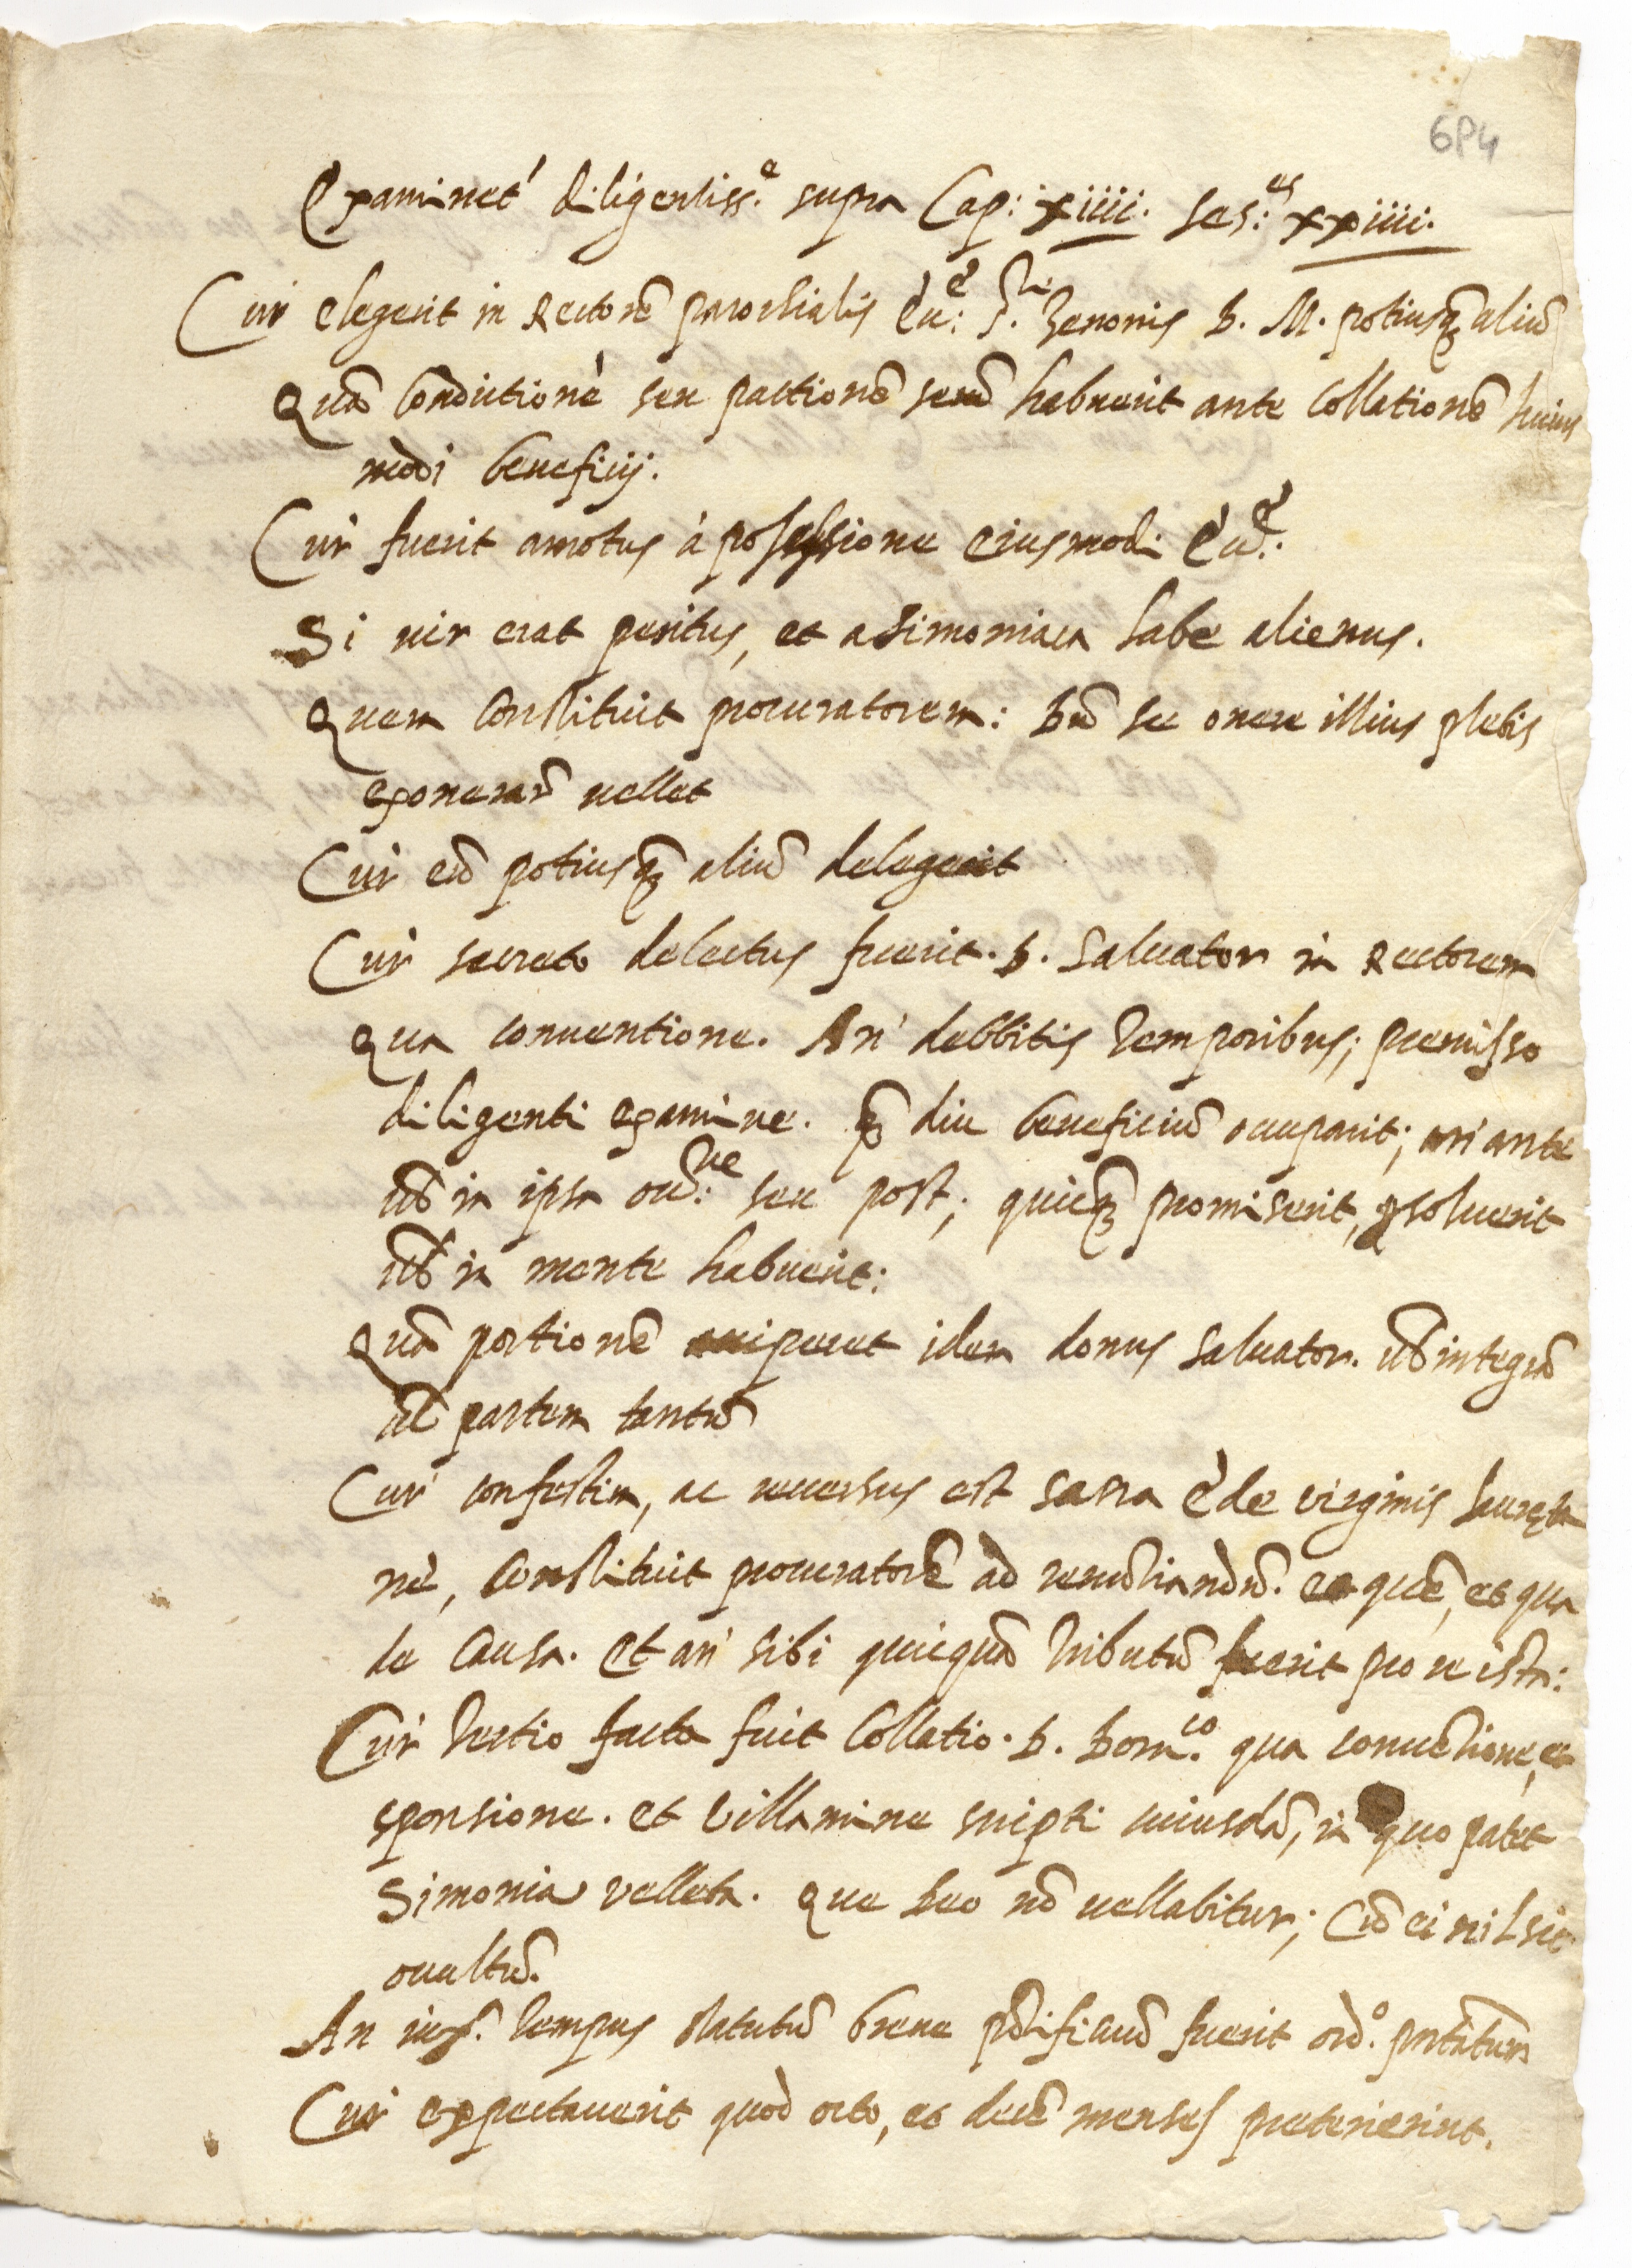 6P4
Examinet' diligentiss.e supra Cap: xiiii. ses:es xxiiii.
Cur elegerit in Rectorẽ parochialis Ec:e S.ti Zenonis D. M. potiusq̃ aliũ
Quã Conditionẽ seu pactionẽ secũ habuerit ante Collationẽ huius
modi beneficij.
Cur fuerit amotus à possessione eiusmodi Ec:e
Si vir erat peritus, et a simoniaca labe alienus.
Quem Constituit procuratorem: Dũ se onere illius plebis
exonerarẽ vellet
Cur eũ potiusq̃ aliũ delegerit
Cur secreto delectus fuerit. D. Salvator in Rectorem
qua conventione. An' debbitis temporibus; premisso
diligenti examine. q̃ diu beneficiũ occuparit; an' ante
ũl in ipsa occ:ne seu post; quicq̃ promiserit, psolverit
ũl in mente habuerit:
Quã portionẽ acciperet idem donus salvator. ũl integrã
ũl partem tantũ
Cur confestim, ac reversus est sacra Ede virginis Laureta
nè, Constituit procuratorẽ ad renũtiandũ. et quẽ, et qua
de Causa. Et an' sibi quicquã tributũ fuerit pro re ista:
Cur tertio facta fuit Collatio. D. Dom.co qua conuẽtione, et
sponsione. et Villamine scripti cuiusdã, in quo patet
Simonia vellata. que Deo nõ vellabitur; Cũ ei nil sit
occultũ.
An tempus statutũ breve põtificiũ fuerit ord.o
Cur expectaverit quod octo, et decẽ menses preterierint.